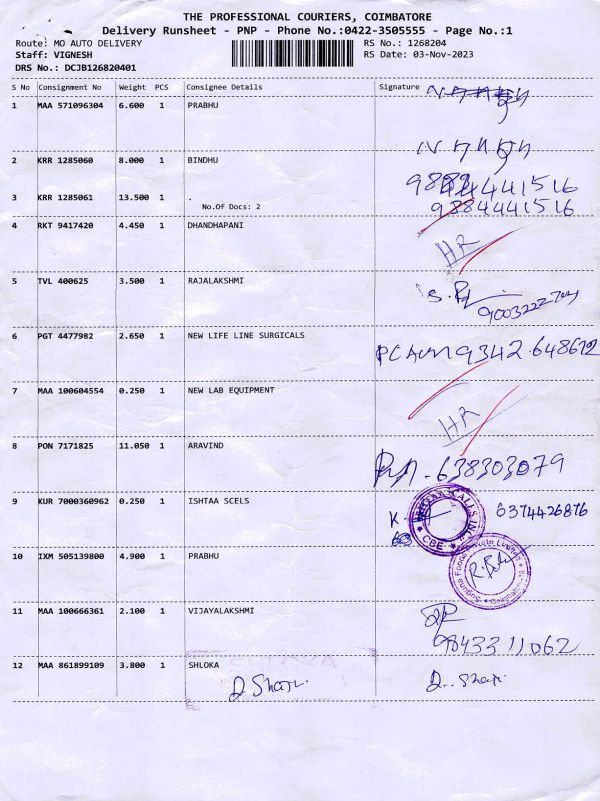 THE PROFESSIONAL COURIERS, COIMBATORE
Delivery Runsheet - PNP - Phone No.:0422-3505555 - Page No.:1
Route: MO AUTO DELIVERY RS No.: 1268204
Staff: VIGNESH RS Date: 03-Nov-2023
DRS No.: DCJB126820401
S No Consignment No Weight PCS Consignee Details Signature
1 MAA 571096304 6.600 1 PRABHU
2 KRR 1285060 8.000 1 BINDHU
3 KRR 1285061 13.500 1 .
No.Of Docs: 2 9884441516
4 RKT 9417420 4.450 1 DHANDHAPANI
HR
5 TVL 400625 3.500 1 RAJALAKSHMI
6 PGT 4477982 2.650 1 NEW LIFE LINE SURGICALS
7 MAA 100604554 0.250 1 NEW LAB EQUIPMENT
HR
8 PON 7171825 11.050 1 ARAVIND
638303079
9 KUR 7000360962 0.250 1 ISHTAA SCELS
6374426876
CBE
10 IXM 505139800 4.900 1 PRABHU
11 MAA 100666361 2.100 1 VIJAYALAKSHMI
9843311062
12 MAA 861899109 3.800 1 SHLOKA